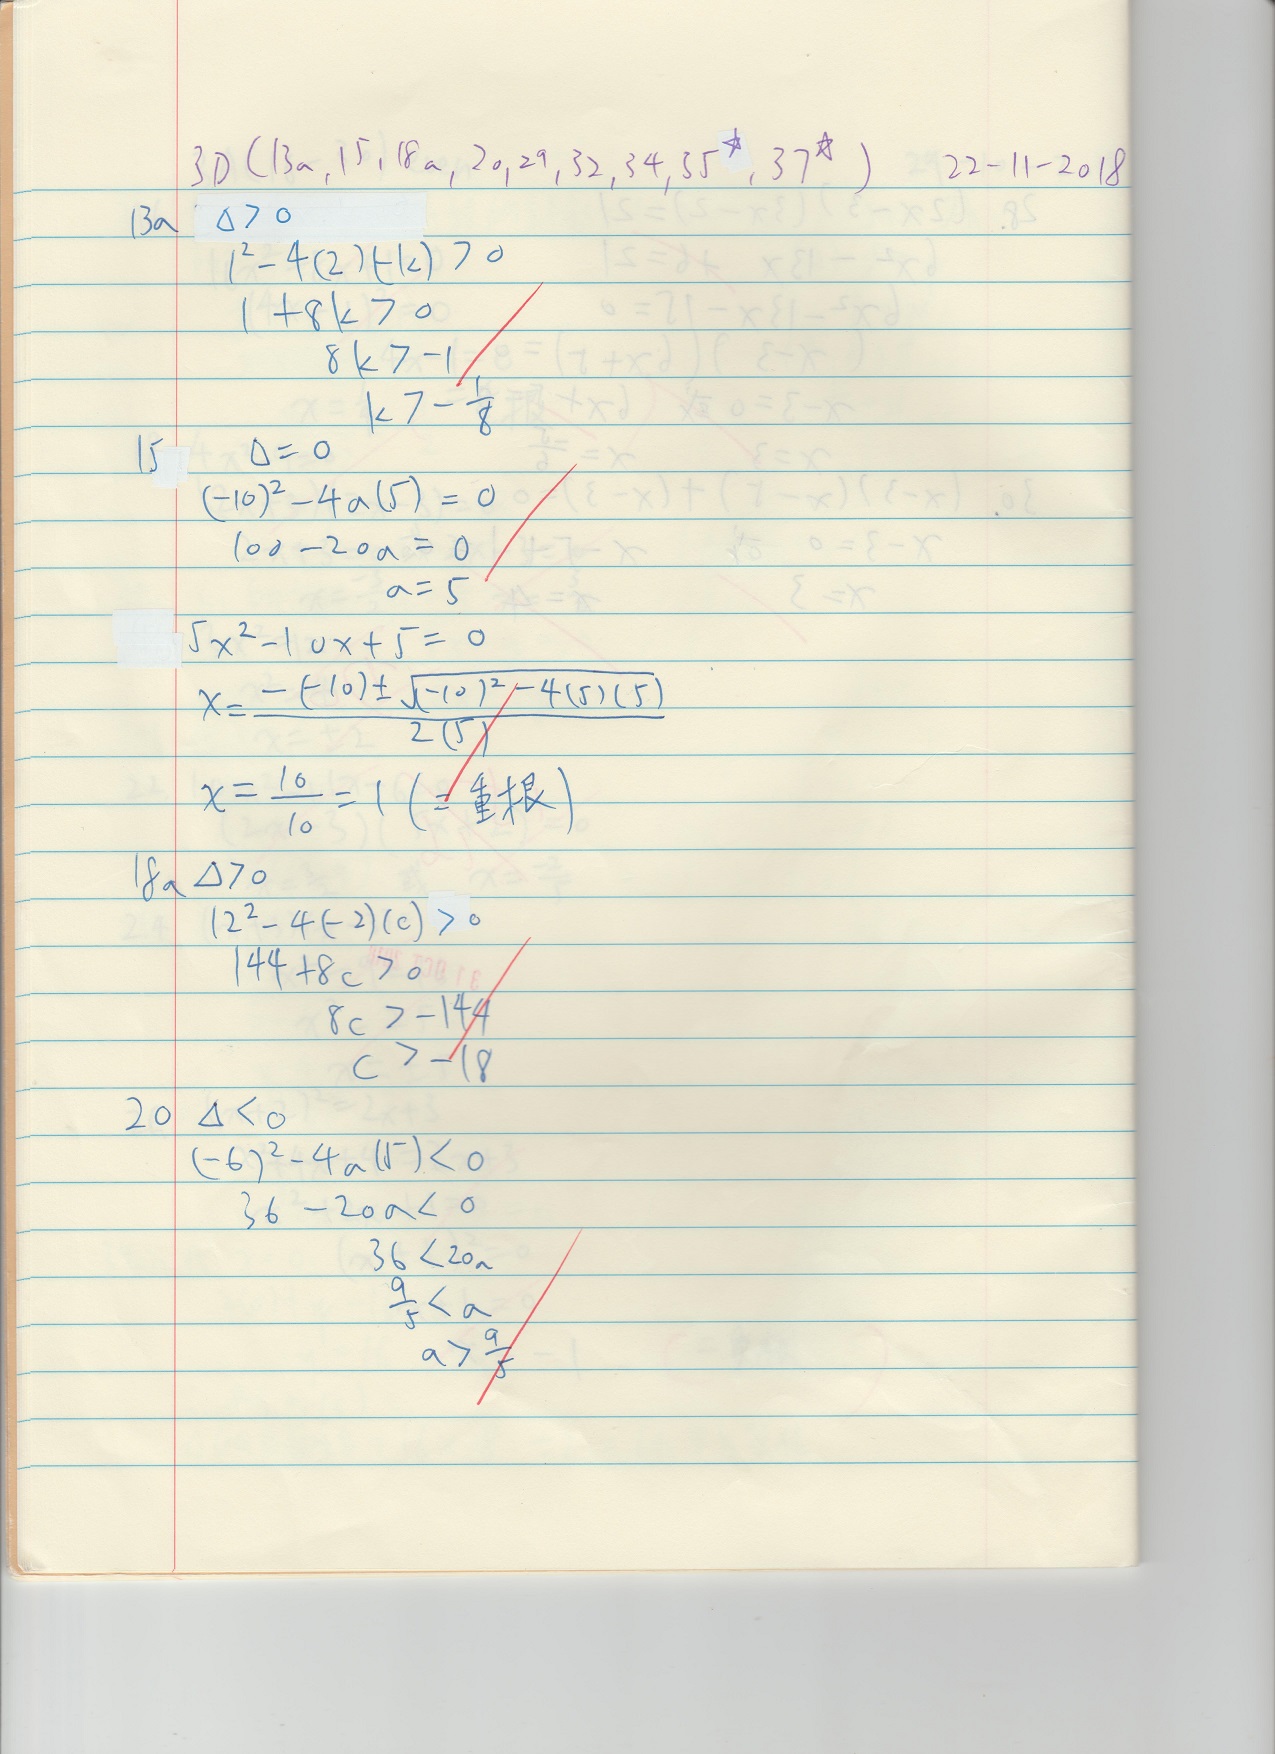 3D (13a, 15, 18a, 20, 29, 32, 34, 35☆, 37☆) 22-11-2018
13a Δ > 0
1² - 4(2)(-k) > 0
1 + 8k > 0
8k > -1
k > -1/8
15 Δ = 0
(-10)² - 4a(5) = 0
100 - 20a = 0
a = 5
5x² - 10x + 5 = 0
x = (-(-10) ± √((-10)² - 4(5)(5))) / 2(5)
x = 10/10 = 1 (二重根)
18a Δ > 0
12² - 4(-2)(c) > 0
144 + 8c > 0
8c > -144
c > -18
20 Δ < 0
(-6)² - 4a(5) < 0
36 - 20a < 0
36 < 20a
9/5 < a
a > 9/5